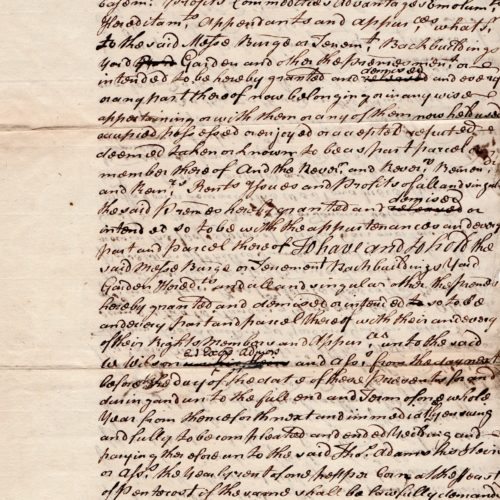 Easem.ts Profits Commodities Advantages Emolum.ts
Hereditam.ts Appendants and Appur.ces whats.
to the said Mess.e Burge or Tenem.t Backbuilding
Yard Garden and other the premes ment.d or
intended to be hereby granted and demised released and every
or any part thereof now belonging or in any wise
appertaining or with them or any of them now held used
occupied possessed or enjoyed or accepted reputed
deemed taken or known to be as part parcel or
member thereof And the Rever.n and Rever.ns Remr.
and Rem.rs Rents Yssues and Profits of all and singr
the said Prem.es hereby granted and demised released or
intended so to be with the appurtenances and every
part and parcel thereof To have and to hold the
said Mess.e Burge or Tenement Backbuildings Yard
Garden Hered.ts and all and singular other the prem.es
hereby granted and demised or intended so to be
and every part and parcel thereof with their and every
of their Rights Members and Appur.ces unto the said
W. Wilson Ex.ors Adm.ors and Ass.s from the day next
before the day of the date of these presents for and
during and unto the full end and Term of one whole
Year from thence forth next and immediately ensuing
and fully to be compleated and ended Yeilding and
paying therefore unto the said Tho.s Adams his Heirs
or Ass.s the Yearly rent of one pepper Corn at the Feast
of Pentecost if the same shall be lawfully demand